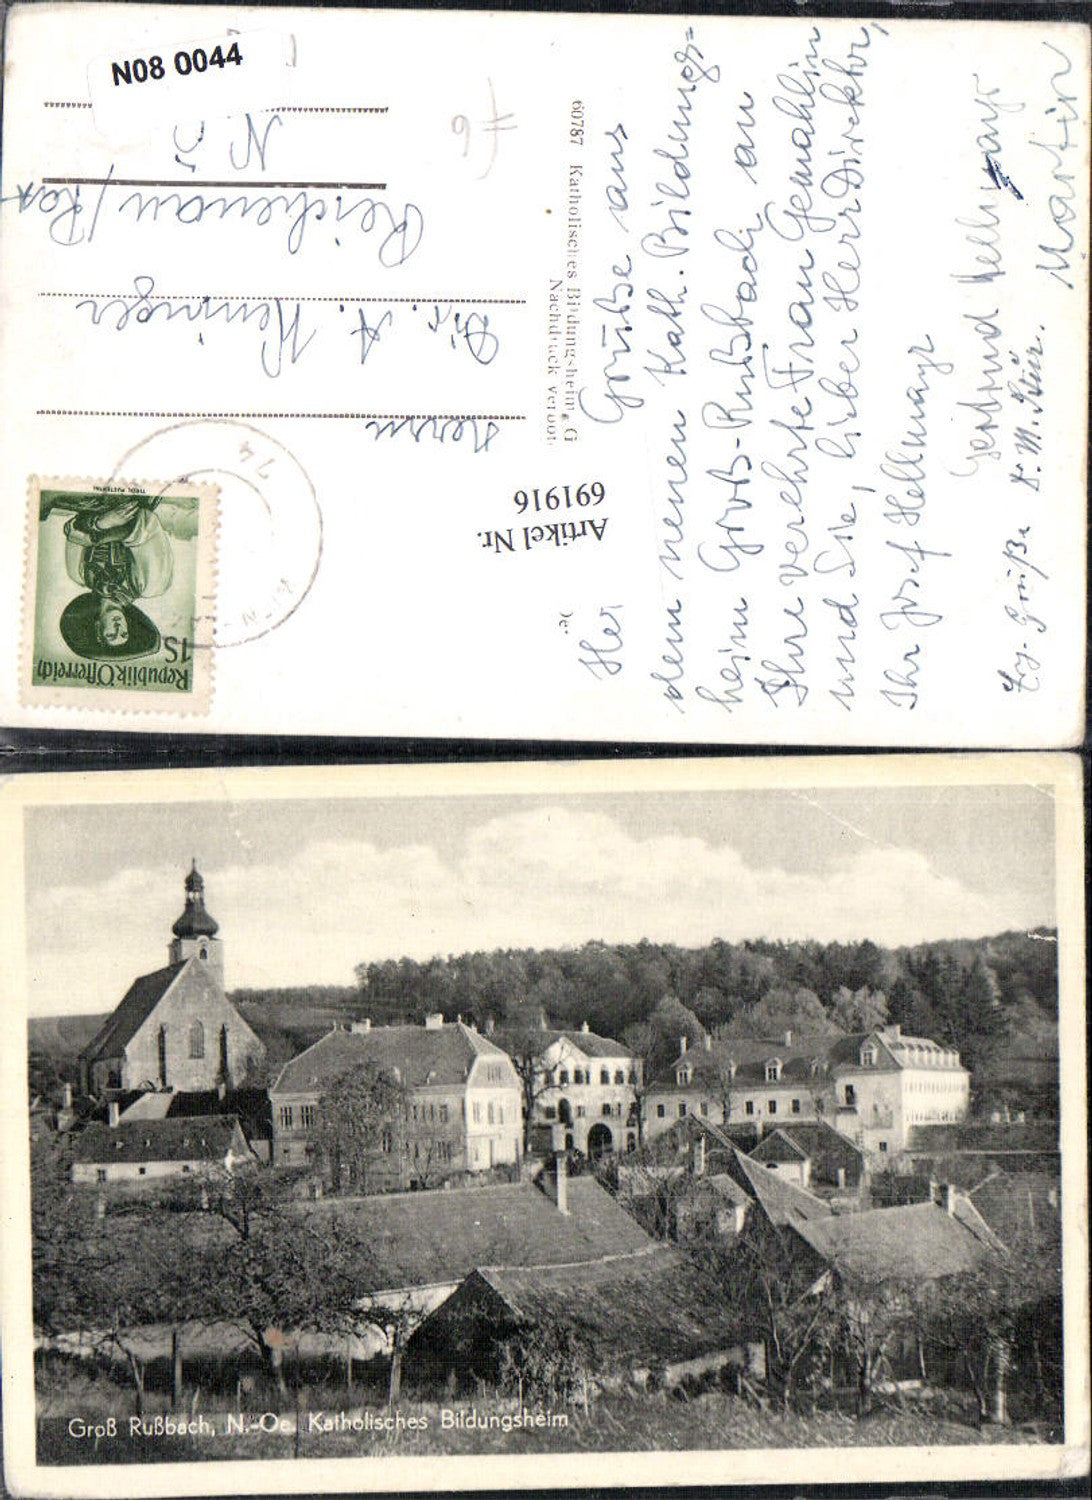 N08 0044
Herrn
Dir. A. Kenniger
Reichenau/Rax
N.Ö.
Republik Österreich
1S
TIROL PUSTERTAL
60787 Katholisches Bildungsheim, G
Nachdruck verbot
Artikel Nr.
691916
Grüße aus
dem neuen Kath. Bildungs-
heim Groß-Rußbach an
Ihre verehrte Frau Gemahlin
und Sie, lieber Herr Direktor,
Ihr Josef Hellmayr
Gertrud Hellmayr
Martin
Groß Rußbach, N.-Oe. Katholisches Bildungsheim